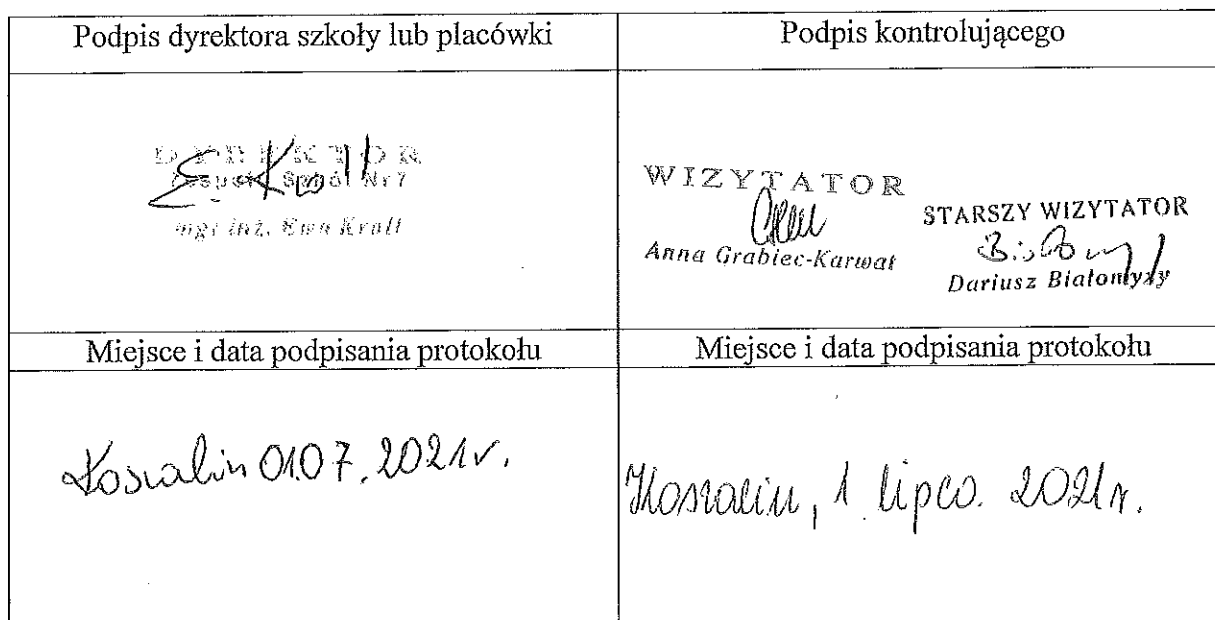 Podpis dyrektora szkoły lub placówki
Podpis kontrolującego
DYREKTOR
Zespołu Szkół Nr 7
mgr inż. Ewa Krall
WIZYTATOR
Anna Grabiec-Karwat
STARSZY WIZYTATOR
Dariusz Białomyzy
Miejsce i data podpisania protokołu
Miejsce i data podpisania protokołu
Koszalin 01.07.2021r.
Koszalin, 1 lipca. 2021r.